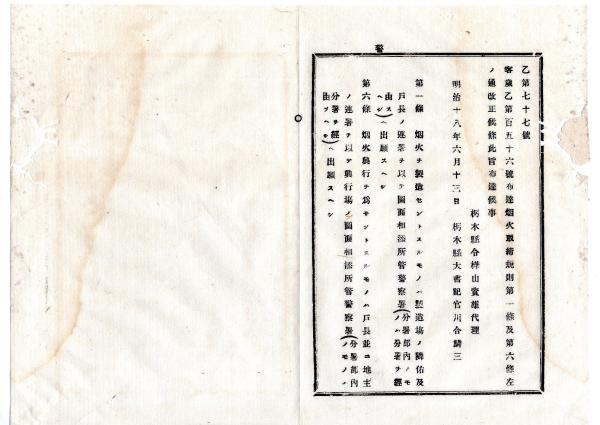 警
乙第七十七號
客歲乙第百五十六號布達烟火取締規則第一條及第六條左
ノ通改正候條此旨布達候事
栃木縣令樺山資雄代理
明治十八年六月十三日 栃木縣大書記官川合鱗三
第一條 烟火ヲ製造セントスルモノハ製造塲ノ隣佑及
戸長ノ連署ヲ以テ圖面相添所管警察署(分署部内ノモノハ分署ヲ經
由スヘシ)ヘ出願スヘシ
第六條 烟火興行ヲ爲サントスルモノハ戸長並ニ地主
ノ連署ヲ以テ興行塲ノ圖面相添所管警察署(分署部内ノモノハ
分署ヲ經由スヘシ)ヘ出願スヘシ